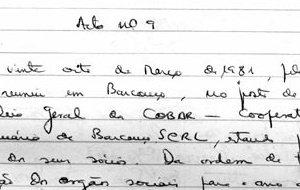 Acta nº 9
vinte oito de Março de 1981,
reuniu em Barcouço, no posto de
Geral da COBAR — Cooperat
de Barcouço SCRL, estando
os seus sócios. Da ordem de
Orgãos sociais para o ano